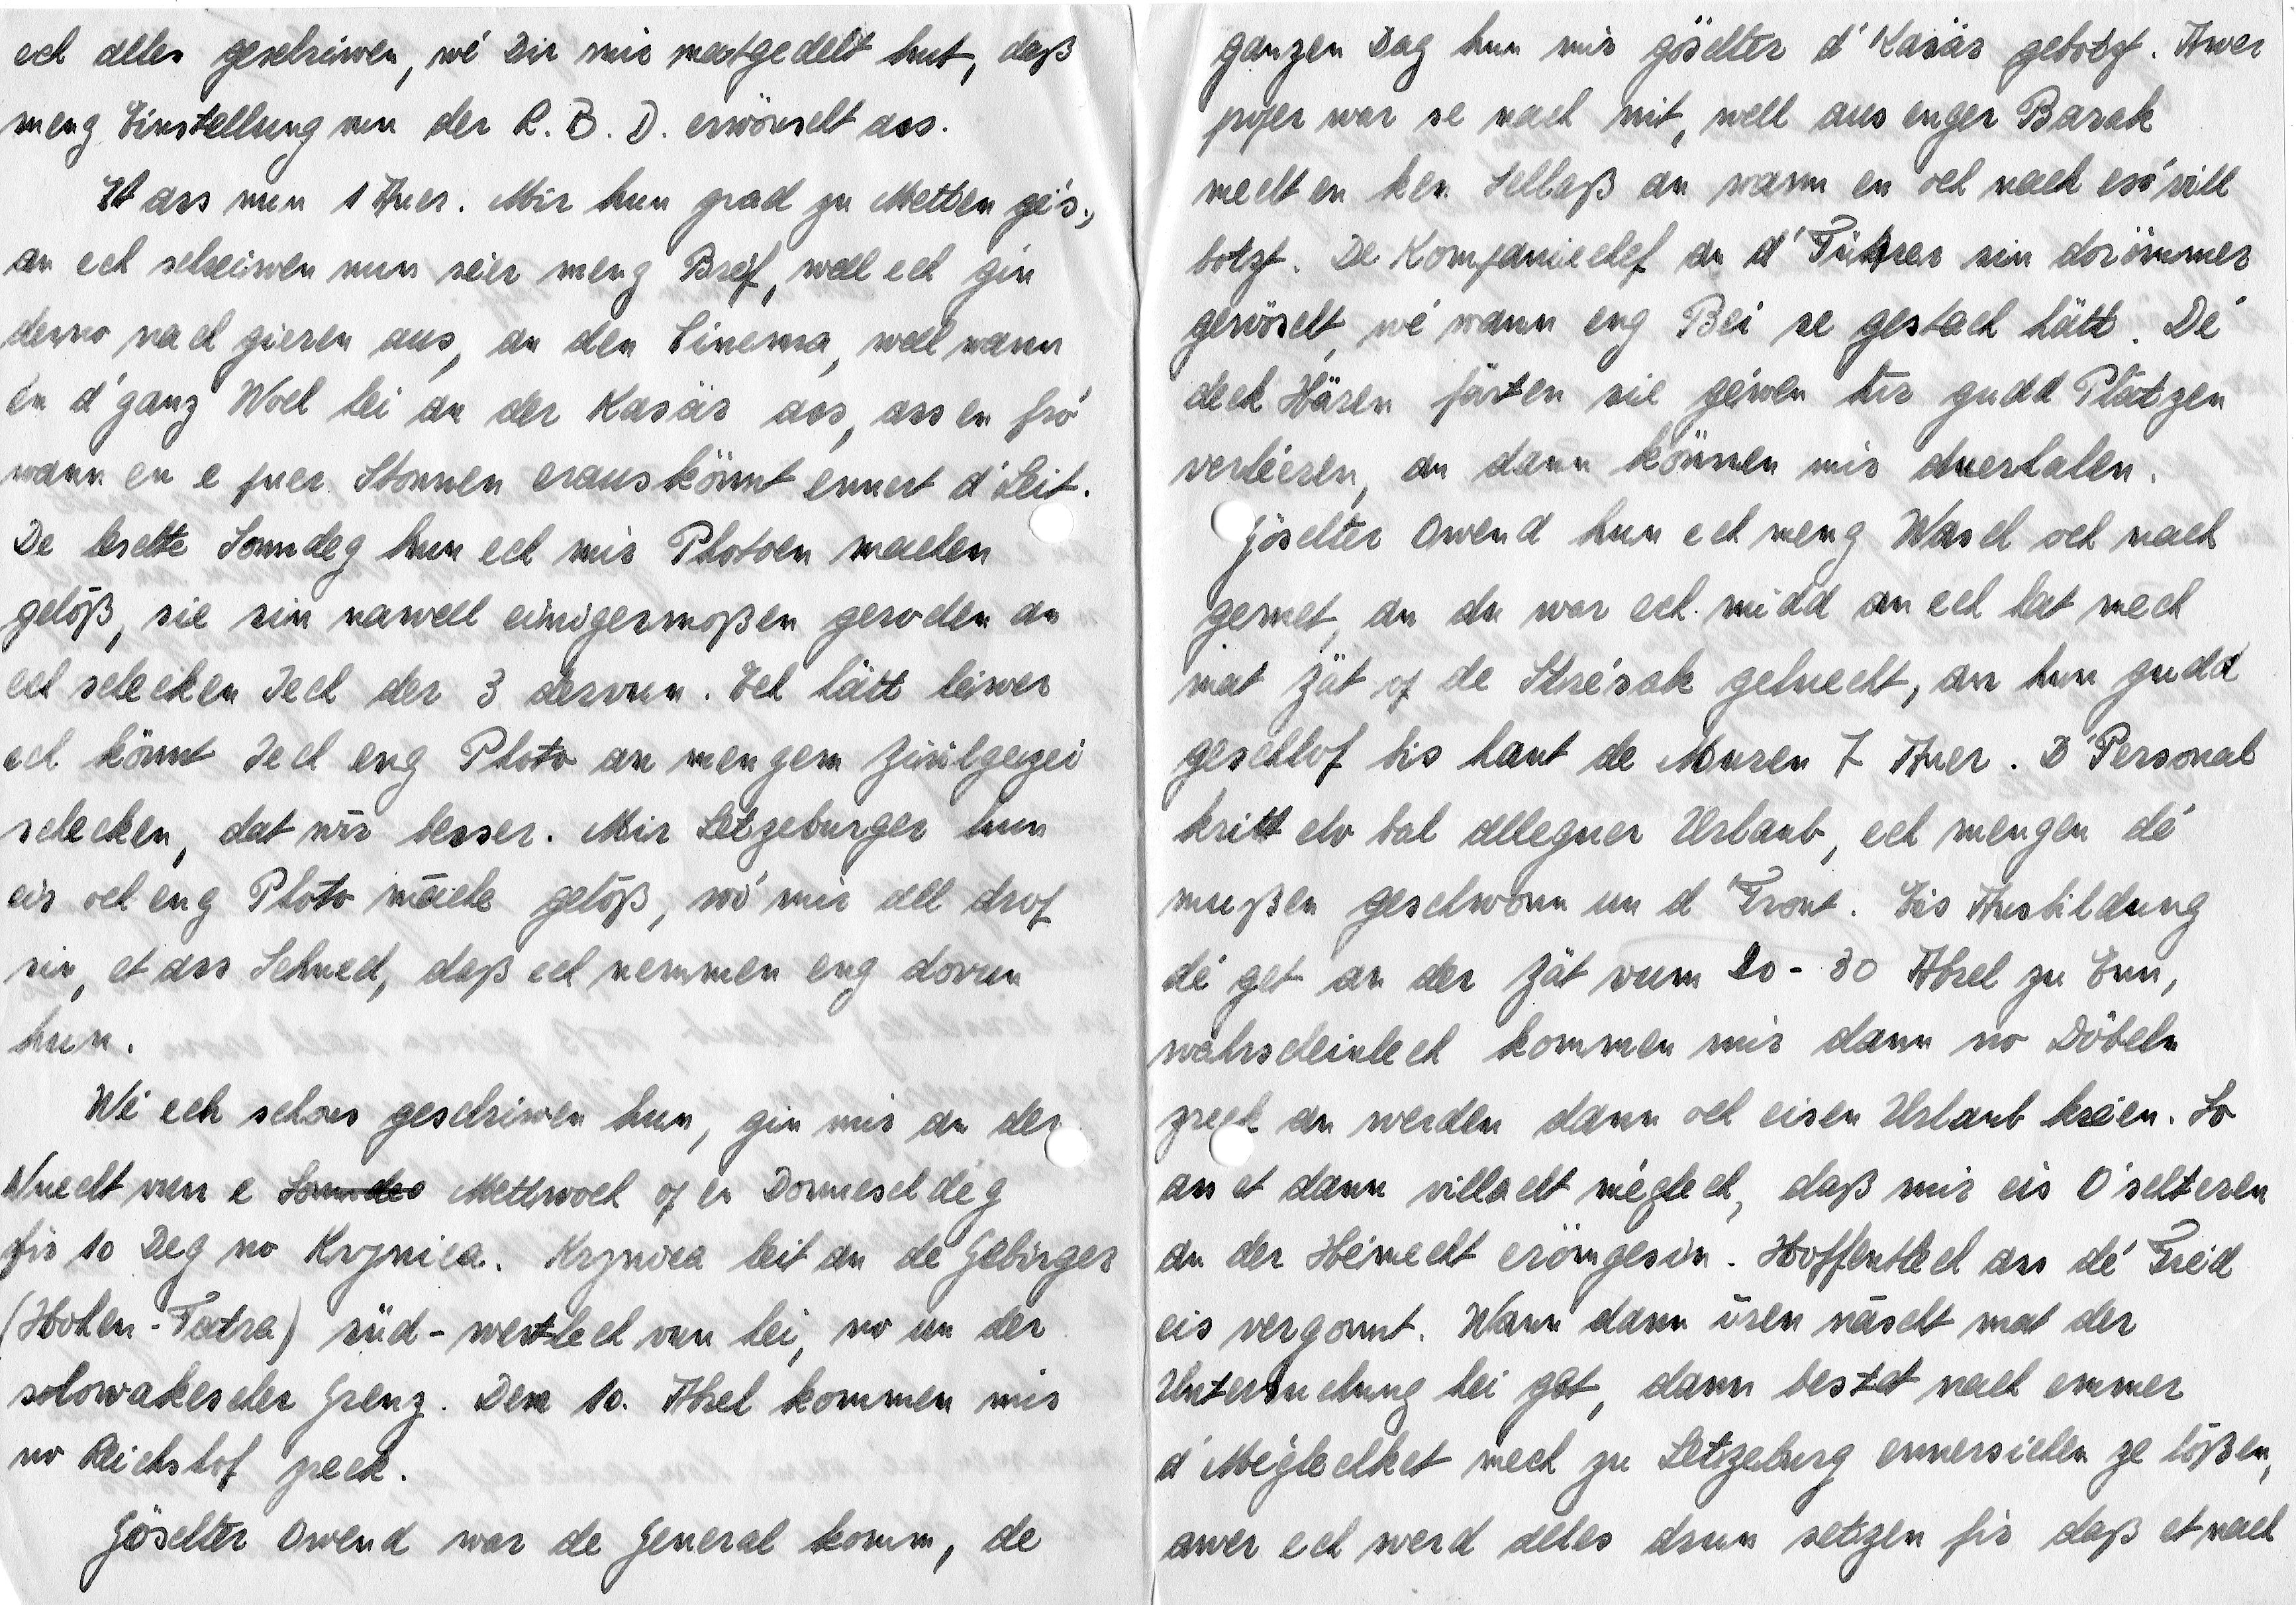 ech alles geschriwen, wé Dir mir matgedelt hut, daß
meng Einstellung vun der R. B. D. erwönscht ass.
Et ass nun 1 Auer. Mir hun grad zu Metten gés.,
an ech schreiwen nun séier meng Bréif, well ech gin
derno nach gieren aus, an den Cinema, well wann
en d'ganz Woch hei an der Kasär ass, ass en fró
wann en e puer Stonnen erauskönnt ennert d'Leit.
De leschte Sonndeg hun ech mir Photoen machen
gelöß, sie sin nawell einigermoßen geroden an
ech schecken Iech der 3 dervun. Ech hätt léiwer
ech könnt Iech eng Photo an mengem Zivilgezei
schecken, dat wir besser. Mir Letzeburger hun
eis och eng Photo mache gelöß, wó mir all drof
sin, et ass Schued, daß ech nemmen eng dovun
hun.
Wé ech schons geschriwen hun, gin mir an der
Nuecht vun e Sonndeg Mettwoch of en Donneschdeg
fir 10 Deg no Krynica. Krynica leit an de Gebirger
(Hohen-Tatra) süd-westlech vun hei, no un der
slowakescher Grenz. Den 10. Abrel kommen mir
no Reichshof zreck.
Göschter Owend war de General komm, de
ganzen Dag hun mir göschter d'Kasär gebotzt. Awer
proper war se nach nit, well aus enger Barak
mecht en ken Schlaß an wann en och nach esó vill
botzt. De Kompaniechef an d'Führer sin dorömmer
gewöscht, wé wann eng Bei se gestach hätt. Dé
deck Hären färten sie géwen hir gudd Plätzen
verléieren, an dann können mir duerhalen.
Göschter Owend hun ech meng Wäsch och nach
gemet, an du war ech midd an ech hat mech
mat Zät of de Strésak geluecht, an hun gudd
geschlof bis haut de Muren 7 Auer. D'Personal
kritt elo bal alleguer Urlaub, ech mengen dé
mußen geschwönn un d'Front. Eis Ausbildung
dé get an der Zät vum 20-30 Abrel zu Enn,
wahrscheinlech kommen mir dann no Döbeln
zreck an werden dann och eisen Urlaub kréien. So
ass et dann villächt méglech, daß mir eis Óschteren
an der Héimecht erömgesin. Hoffentlech ass dé Fréd
eis vergonnt. Wann dann ären näscht mat der
Untersuchung hei get, dann bestet nach emmer
d'Méglechket mech zu Letzeburg ennersichen ze lößen,
awer ech werd alles drun setzen fir daß et nach